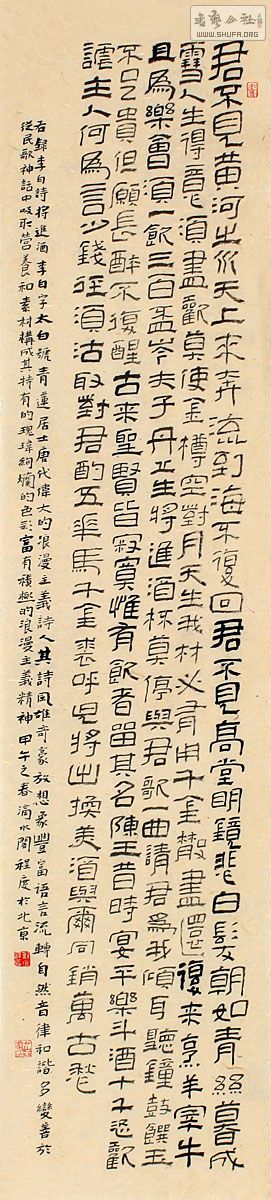 書藝公社
WWW.SHUFA.ORG
君不見黃河之水天上來奔流到海不復回君不見高堂明鏡悲白髮朝如青絲暮成
雪人生得意須盡歡莫使金樽空對月天生我材必有用千金散盡還復來烹羊宰牛
且為樂會須一飲三百杯岑夫子丹丘生將進酒杯莫停與君歌一曲請君為我傾耳聽鐘鼓饌玉
不足貴但願長醉不復醒古來聖賢皆寂寞惟有飲者留其名陳王昔時宴平樂斗酒十千恣歡
謔主人何為言少錢徑須沽取對君酌五華馬千金裘呼兒將出換美酒與爾同銷萬古愁
右錄李白詩將進酒李白字太白號青蓮居士唐代偉大的浪漫主義詩人其詩風雄奇豪放想象豐富語言流轉自然音律和諧多變善於
從民歌神話中吸取營養和素材構成其特有的瑰瑋絢爛的色彩富有積極的浪漫主義精神甲午之春滴水閣程度於北京